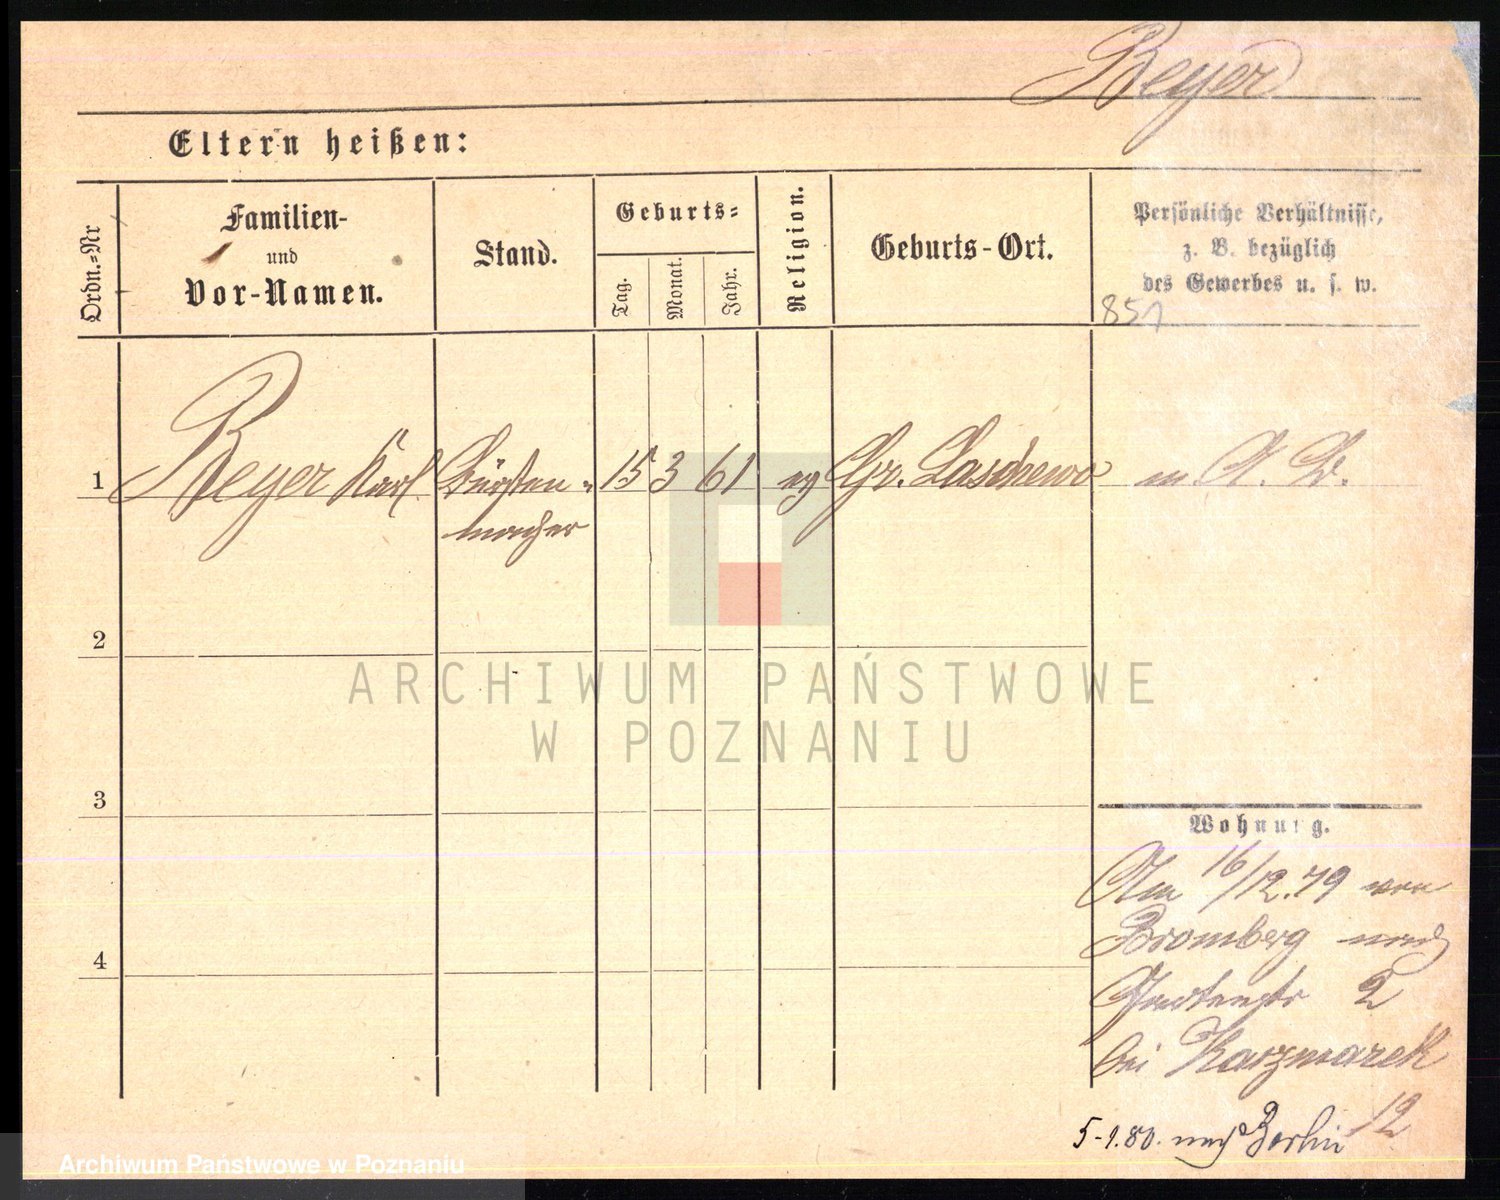 Beyer
Eltern heißen:
Ordn.=Nr
Familien-
und
Vor-Namen.
Stand.
Geburts=
Tag.
Monat.
Jahr.
Religion.
Geburts-Ort.
Persönliche Verhältnisse,
z. B. bezüglich
des Gewerbes u. s. w.
851
1
Beyer Karl
Bürsten-
macher
15 3 61
ev
Gr. Laschewo
m. A. B.
2
3
4
Wohnung.
Am 16/12.79 von
Bromberg nach
2
bei Kaczmarek
12
5-1.80. nach Berlin
ARCHIWUM PAŃSTWOWE
W POZNANIU
Archiwum Państwowe w Poznaniu